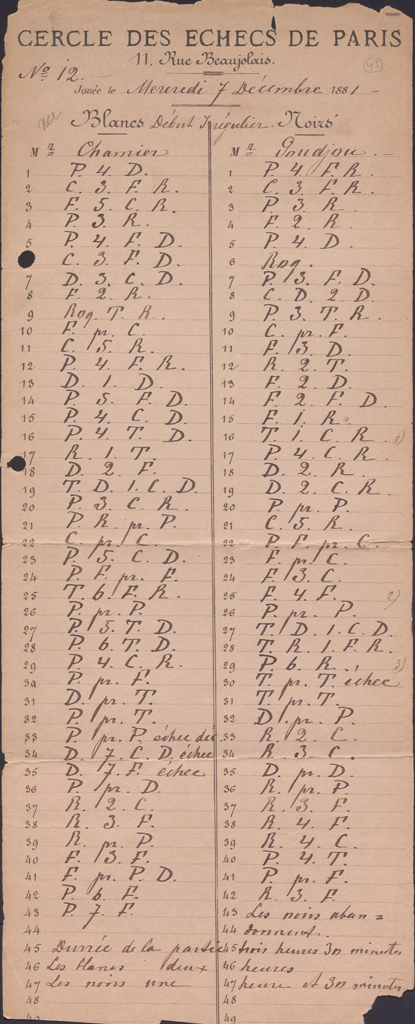 CERCLE DES ECHECS DE PARIS
11, Rue Beaujolais.
Nº 12.
Jouée le Mercredi 7 Décembre 1881 -
Blancs Début Irrégulier. Noirs
Mr Chamier Mr Goudjou. -
1 P. 4. D. 1 P. 4 F. R.
2 C. 3. F. R. 2 C. 3. F. R.
3 F. 5. C. R. 3 P. 3. R.
4 P. 3. R. 4 F. 2. R.
5 P. 4. F. D. 5 P. 4. D.
6 C. 3. F. D. 6 Roq.
7 D. 3. C. D. 7 P. 3. F. D.
8 F. 2. R. 8 C. D. 2. D.
9 Roq. T. R. 9 P. 3. T. R.
10 F. pr. C. 10 C. pr. F.
11 C. 5. R. 11 F. 3. D.
12 P. 4. F. R. 12 R. 2. T.
13 D. 1. D. 13 F. 2. D.
14 P. 5. F. D. 14 F. 2. F. D.
15 P. 4. C. D. 15 F. 1. R.
16 P. 4. T. D. 16 T. 1. C. R. 1)
17 R. 1. T. 17 P. 4. C. R.
18 D. 2. F. 18 D. 2. R.
19 T. D. 1. C. D. 19 D. 2. C. R.
20 P. 3. C. R. 20 P. pr. P.
21 P. R. pr. P. 21 C. 5. R.
22 C. pr. C. 22 P. F. pr. C.
23 P. 5. C. D. 23 F. pr. C.
24 P. F. pr. F. 24 F. 3. C.
25 T. 6. F. R. 25 F. 4. F. 2)
26 P. pr. P. 26 P. pr. P.
27 P. 5. T. D. 27 T. D. 1. C. D.
28 P. 6. T. D. 28 T. R. 1. F. R.
29 P. 4. C. R. 29 P. 6. R. ! 3)
30 P. pr. F. 30 T. pr. T. échec
31 D. pr. T. 31 T. pr. T.
32 P. pr. T. 32 D. pr. P.
33 P. pr. P. échec déc 33 R. 2. C.
34 D. 7. C. D. échec 34 R. 3. C.
35 D. 7. F. échec 35 D. pr. D.
36 P. pr. D. 36 R. pr. P.
37 R. 2. C. 37 R. 3. F.
38 R. 3. F. 38 R. 4. F.
39 R. pr. P. 39 R. 4. C.
40 F. 3. F. 40 P. 4. T.
41 F. pr. P. D. 41 P. pr. F.
42 P. 6. F. 42 R. 3. F.
43 P. 7. F. 43 Les noirs aban =
44 44 donnent.
45 Durrée de la partie 45 trois heures 30 minutes
46 Les blancs deux 46 heures
47 Les noirs une 47 heure et 30 minutes
48 48
49